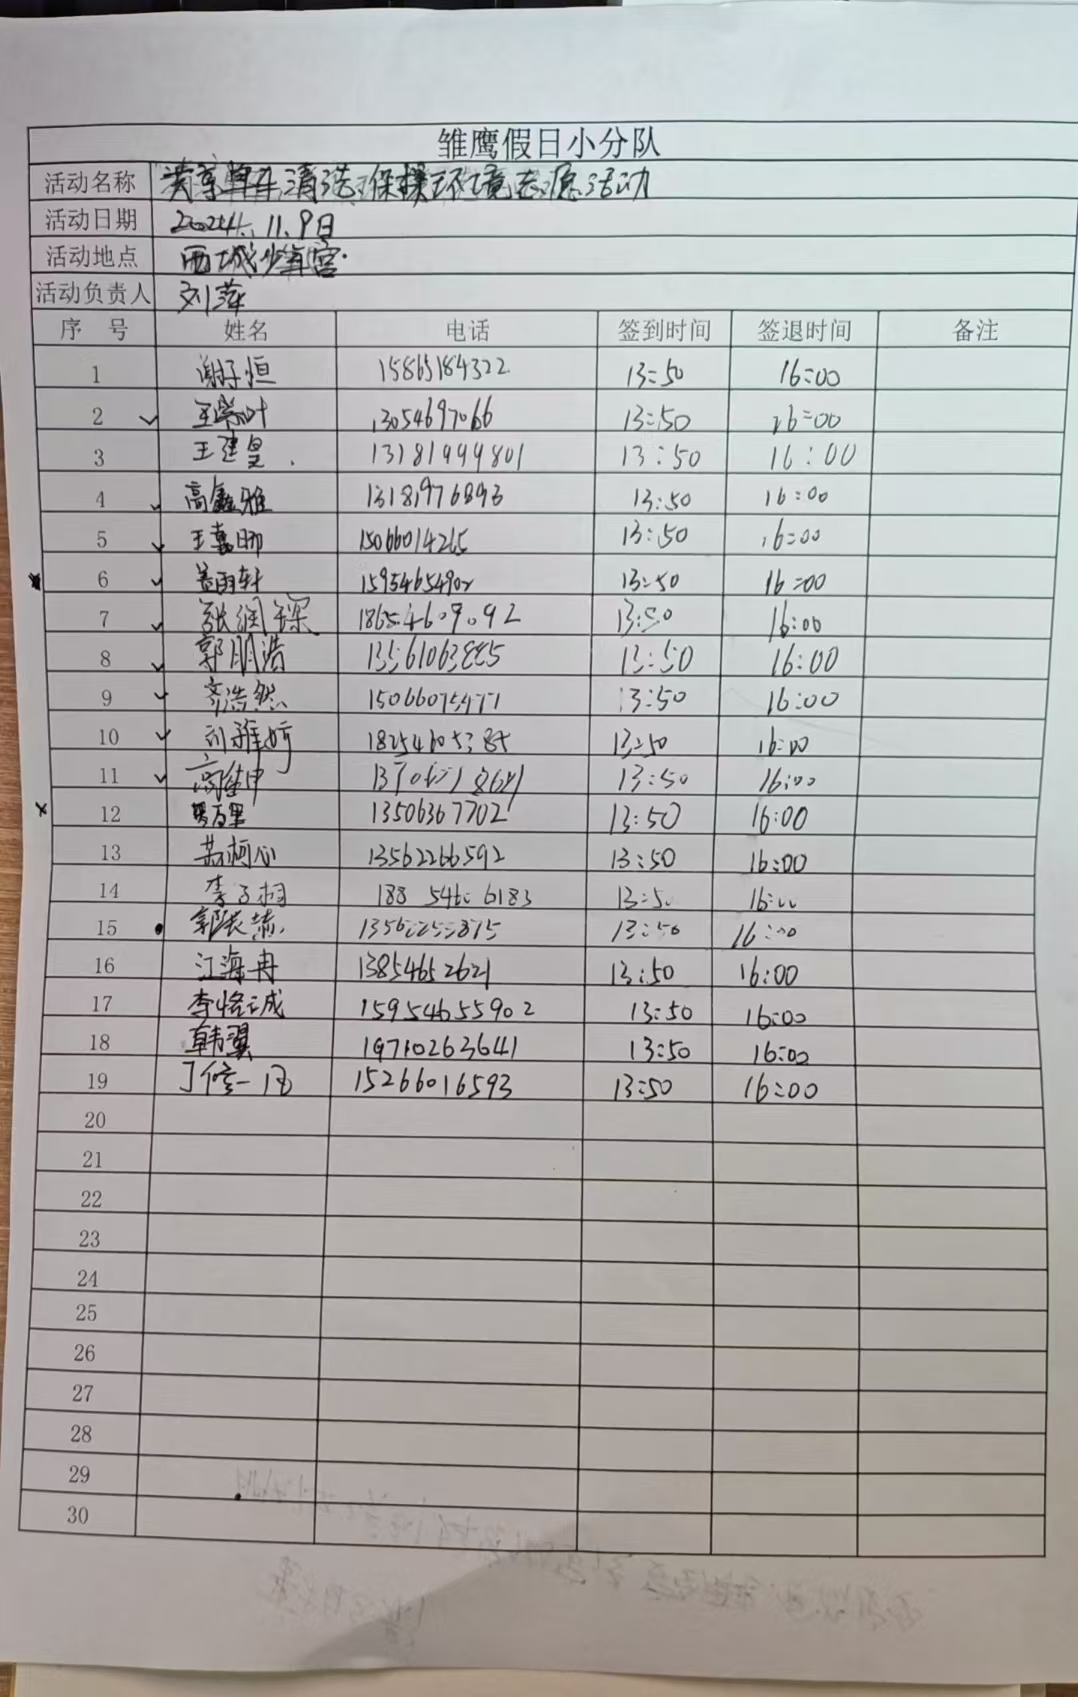 雏鹰假日小分队
活动名称 共享单车清洁 保护环境志愿活动
活动日期 2024.11.9日
活动地点 西城少年宫
活动负责人 刘萍
序 号 姓名 电话 签到时间 签退时间 备注
1 谢子恒 15865184322 13:50 16:00
2 13054697066 13:50 16:00
3 王建皇 13181999801 13:50 16:00
4 高鑫雅 13181976893 13:50 16:00
5 王嘉娜 15066014265 13:50 16:00
6 盖雨轩 15954654902 13:50 16:00
7 张润琛 18654609092 13:50 16:00
8 郭朋浩 13561063885 13:50 16:00
9 齐浩然 13:50 16:00
10 刘雅婷 13:50 16:00
11 13:50 16:00
12 13506367702 13:50 16:00
13 苏柯心 13562266592 13:50 16:00
14 李子桐 188 5466 6183 13:50 16:00
15 13:50 16:00
16 江海冉 13854652621 13:50 16:00
17 李恪诚 15954655902 13:50 16:00
18 韩翼 19710263641 13:50 16:00
19 丁修一 15266016593 13:50 16:00
20
21
22
23
24
25
26
27
28
29
30